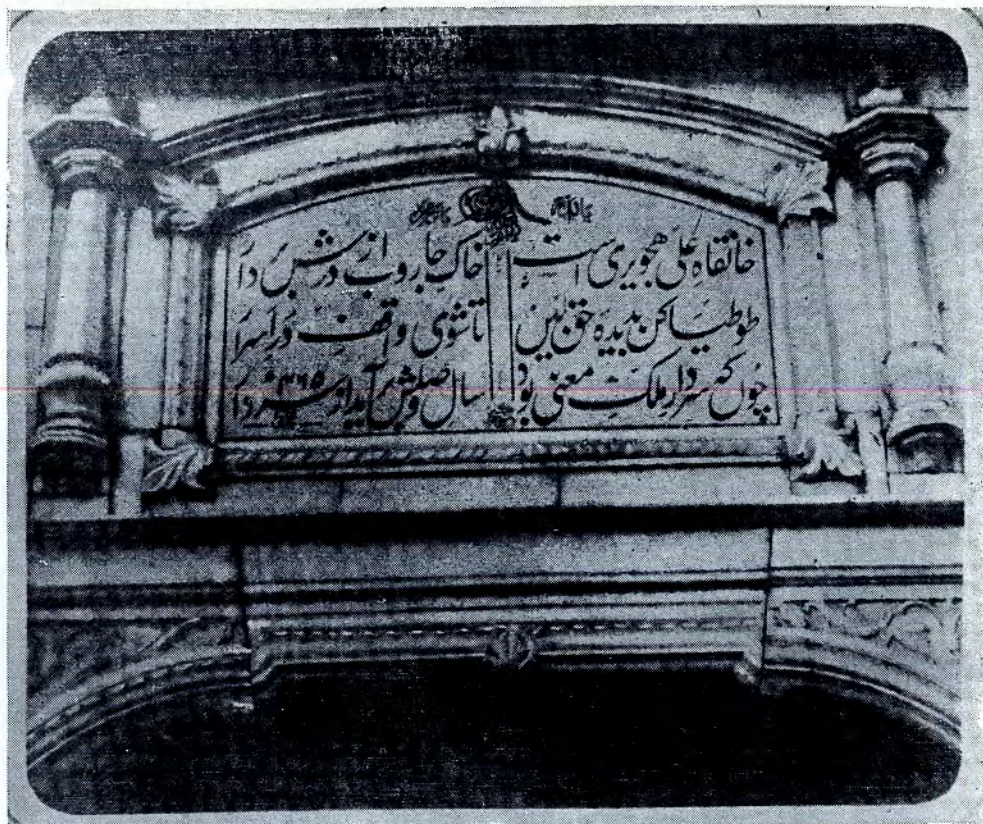 خانقاہ علی ہجویری است خاک جاروب از درش بردار
طوطیا کن بدیدہ حق بین تا شوی واقف در اسرار
چوں کہ سردار ملک معنی بود سال وصلش برآید از سردار